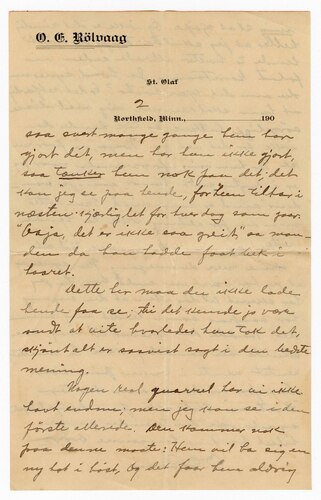 O. E. Rölvaag
St. Olaf
2
Northfield, Minn., 190
saa svært mange gange hun har
gjort dét, men har hun ikke gjort,
saa tænker hun nok paa det; det
kan jeg se paa hende, for hun tiltar i
næsten kjærlighet for hver dag som gaar.
"Osja, det er ikke saa greit" sa man-
den da han hadde faat bek i
haaret.
Dette her maa du ikke lade
hende faa se; thi det kunde jo være
ondt at vite hvorledes hun tok det,
skjønt alt er saavist sagt i den bedste
mening.
Nogen real quarrel har vi ikke
havt endnu; men jeg kan se i den
første allerede. Den kommer nok
paa denne maate: Hun vil ha sig en
ny hat i høst, og det faar hun aldrig